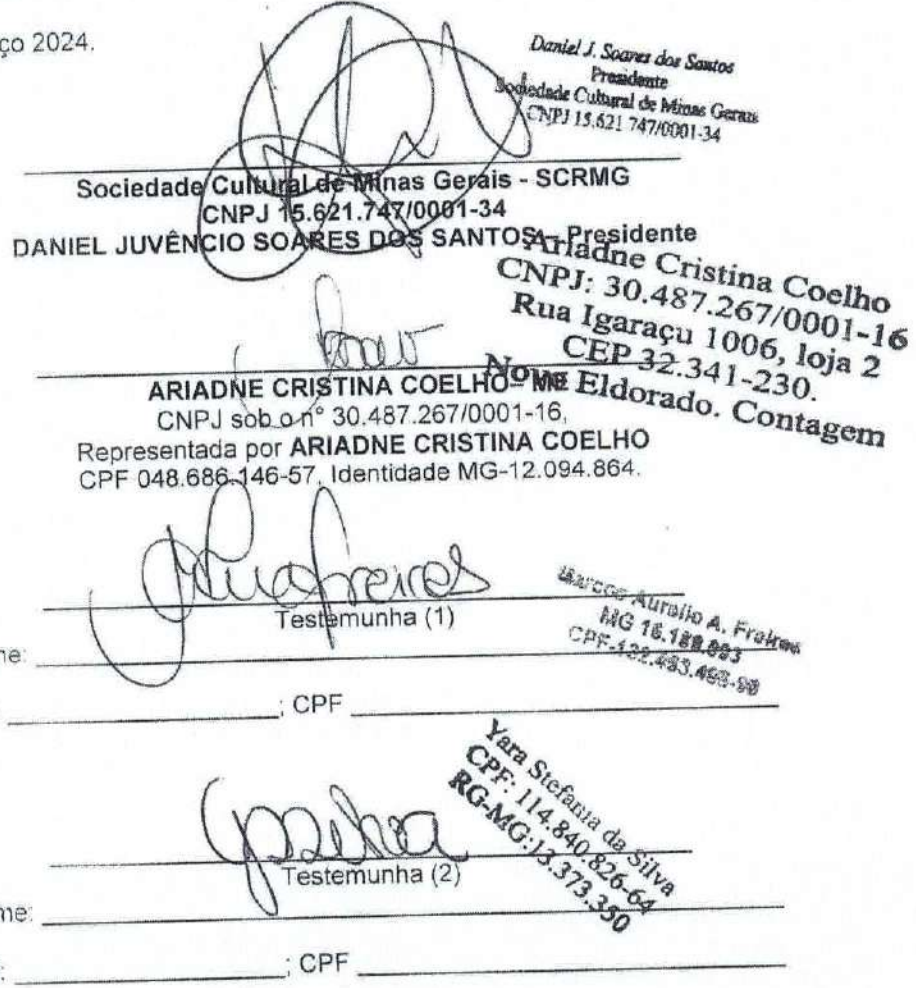 ço 2024.
Daniel J. Soares dos Santos
Presidente
Sociedade Cultural de Minas Gerais
CNPJ 15.621 747/0001-34
Sociedade Cultural de Minas Gerais - SCRMG
CNPJ 15.621.747/0001-34
DANIEL JUVÊNCIO SOARES DOS SANTOS - Presidente
Ariadne Cristina Coelho
CNPJ: 30.487.267/0001-16
Rua Igaraçu 1006, loja 2
CEP 32.341-230.
Novo Eldorado. Contagem
ARIADNE CRISTINA COELHO - ME
CNPJ sob o nº 30.487.267/0001-16,
Representada por ARIADNE CRISTINA COELHO
CPF 048.686.146-57, Identidade MG-12.094.864.
Testemunha (1)
Marcos Aurelio A. Freires
MG 16.188.
CPF-
me:
; CPF
Yara Stefania da Silva
CPF: 114.840.826-64
RG-MG:13.373.350
Testemunha (2)
me:
; CPF